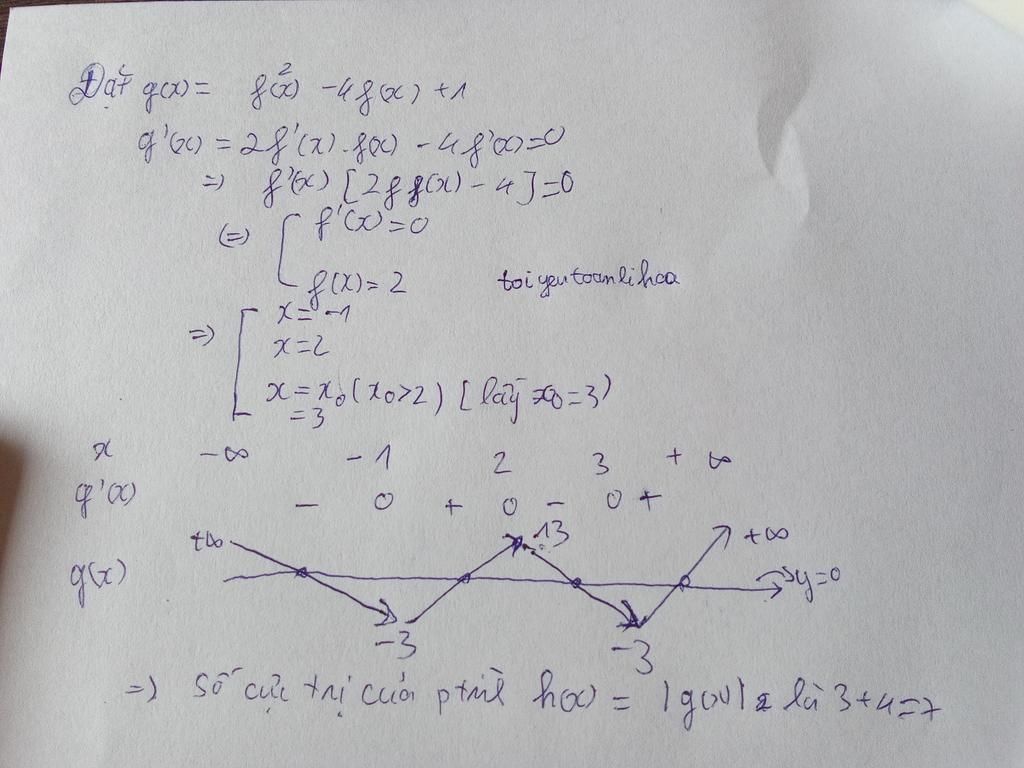 Đặt g(x) = f²(x) - 4f(x) + 1
g'(x) = 2f'(x).f(x) - 4f'(x) = 0
=> f'(x) [2f(x) - 4] = 0
(=) [ f'(x) = 0
f(x) = 2
toiyeutoanlihoa
=> [ x = -1
x = 2
x = x₀ (x₀ > 2) [lấy x₀ = 3)
= 3
x -∞ -1 2 3 +∞
g'(x) - 0 + 0 - 0 +
+∞ 13 +∞
g(x) y=0
-3 -3
=> Số cực trị của h(x) = |g(x)| là 3+4=7